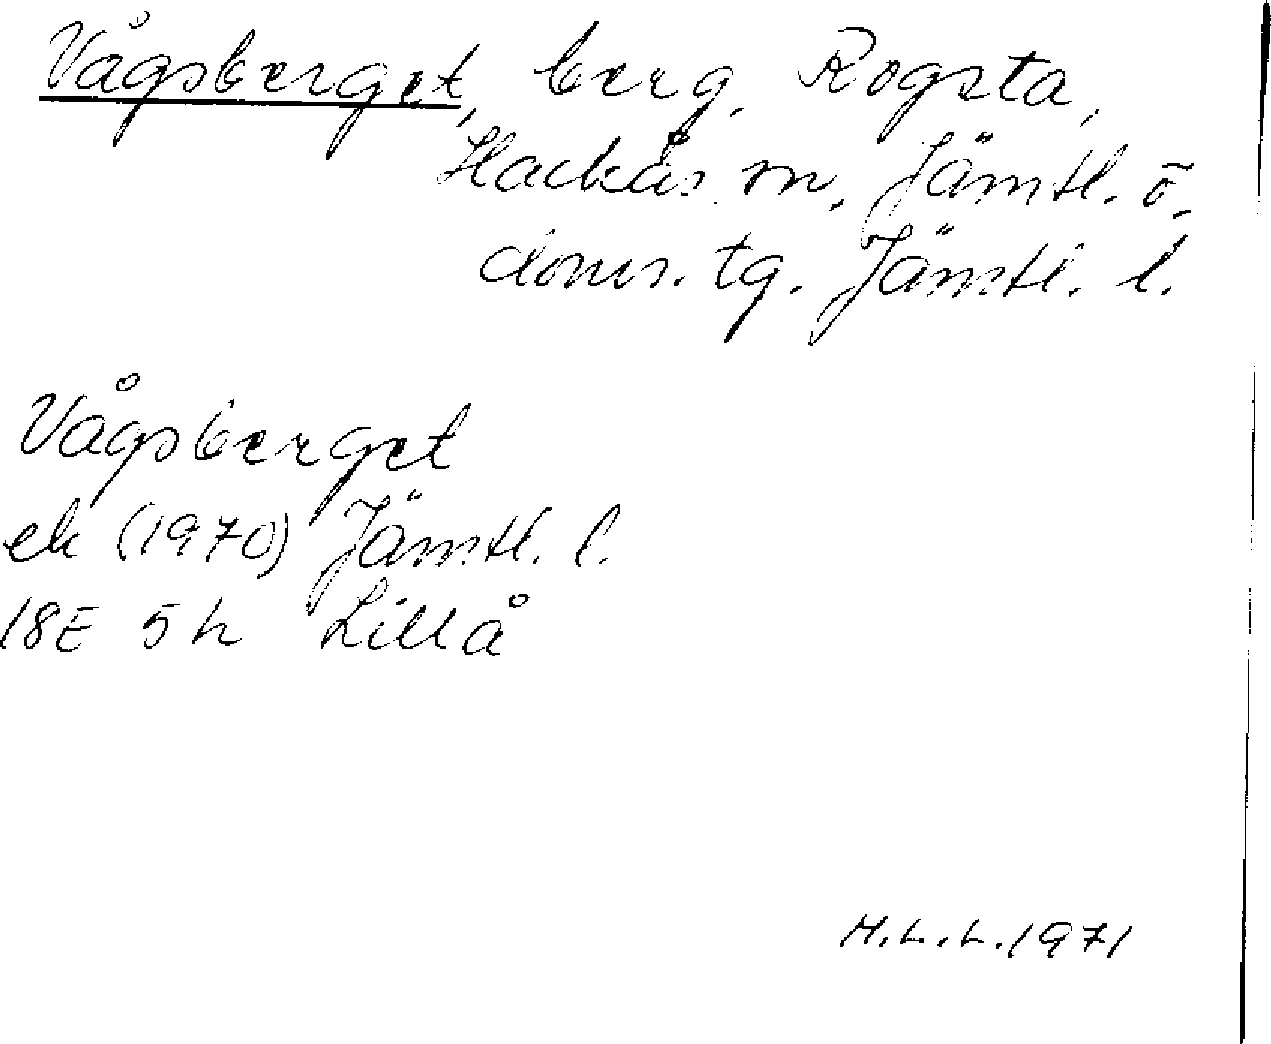 Vågsberget, berg, Rogsta,
Hackås sn, Jämtl. ö.
doms. tg. Jämtl. l.
Vågsberget
ek (1970) Jämtl. l.
18E 5h Lillå
M.L.L. 1971